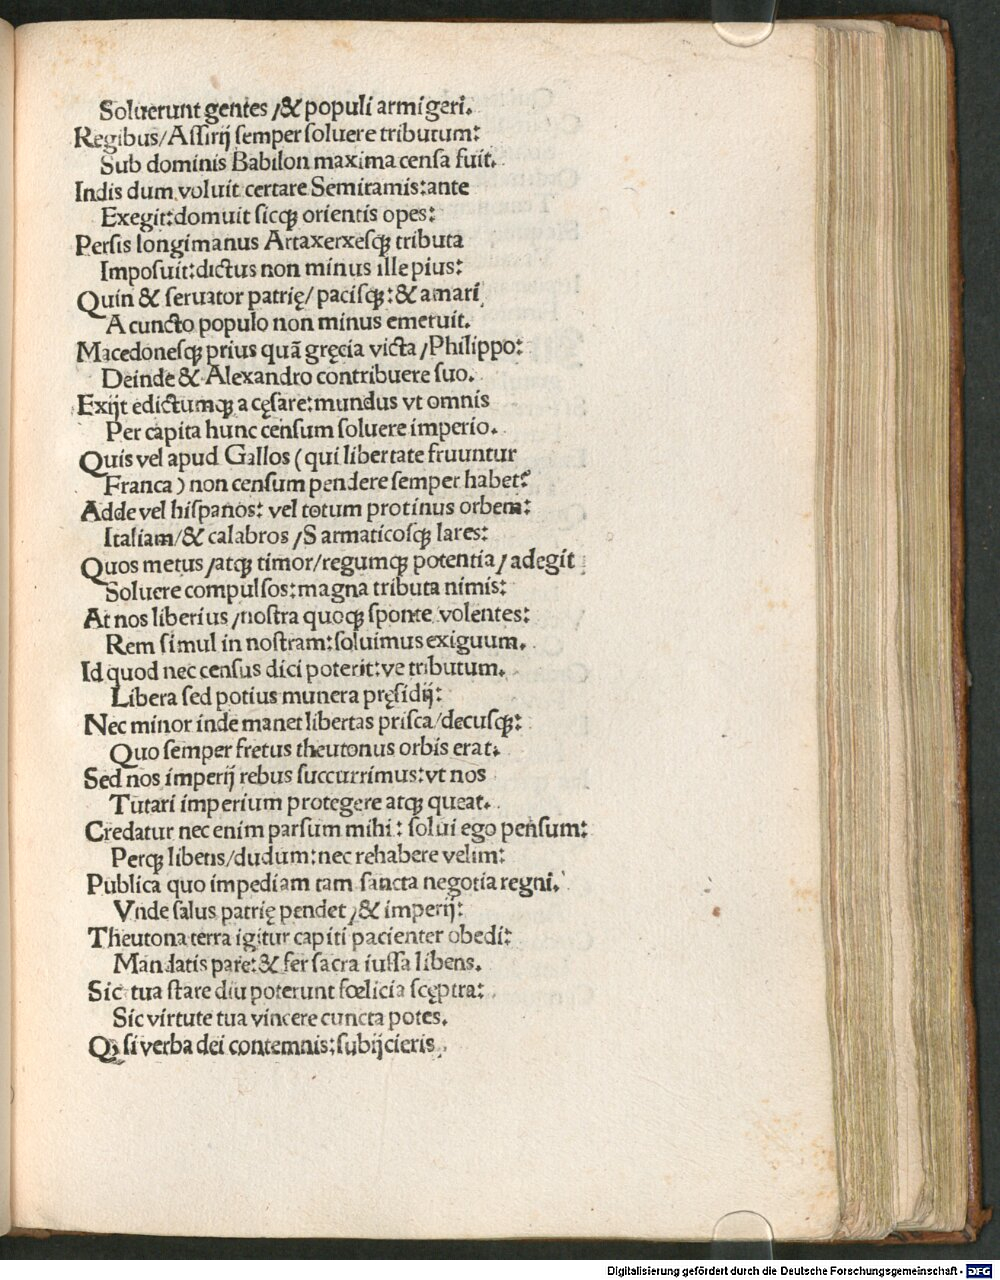 Soluerunt gentes /& populi armigeri.
Regibus/Aſſirij ſemper ſoluere tributum:
Sub dominis Babilon maxima cenſa fuit.
Indis dum voluit certare Semiramis:ante
Exegit:domuit ſicqꝫ orientis opes:
Perſis longimanus Artaxerxeſqꝫ tributa
Impoſuit:dictus non minus ille pius:
Quin & ſeruator patrię/paciſqꝫ:& amari
A cuncto populo non minus emeruit.
Macedoneſqꝫ prius quã gręcia victa /Philippo:
Deinde & Alexandro contribuere ſuo.
Exijt edictumqꝫ a cęſare:mundus vt omnis
Per capita hunc cenſum ſoluere imperio.
Quis vel apud Gallos (qui libertate fruuntur
Franca) non cenſum pendere ſemper habet?
Adde vel hiſpanos: vel totum protinus orbem:
Italiam/& calabros /Sarmaticoſqꝫ lares:
Quos metus /atqꝫ timor/regumqꝫ potentia/ adegit
Soluere compulſos:magna tributa nimis:
At nos liberius /noſtra quoqꝫ ſponte volentes:
Rem ſimul in noſtram:ſoluimus exiguum.
Id quod nec cenſus dici poterit:ve tributum.
Libera ſed potius munera pręſidij:
Nec minor inde manet libertas priſca/decuſqꝫ:
Quo ſemper fretus theutonus orbis erat.
Sed nos imperij rebus ſuccurrimus:vt nos
Tutari imperium protegere atqꝫ queat.
Credatur nec enim parſum mihi: ſolui ego penſum:
Perqꝫ libens/dudum:nec rehabere velim:
Publica quo impediam tam ſancta negotia regni.
Vnde ſalus patrię pendet /& imperij:
Theutona terra igitur capiti pacienter obedi:
Mandatis pare:& fer ſacra iuſſa libens.
Sic tua ſtare diu poterunt fœlicia ſcęptra:
Sic virtute tua vincere cuncta potes.
Qꝫ ſi verba dei contemnis:ſubijcieris
Digitalisierung gefördert durch die Deutsche Forschungsgemeinschaft - DFG